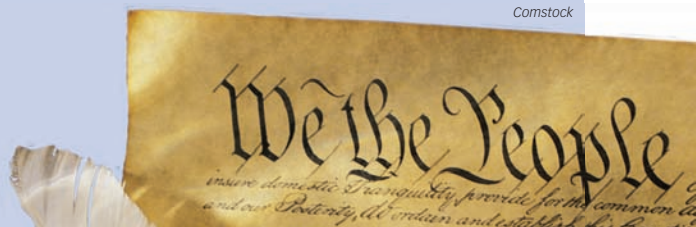 Comstock
We the People
insure domestic Tranquility, provide for the common de
and our Posterity, do ordain and establish this